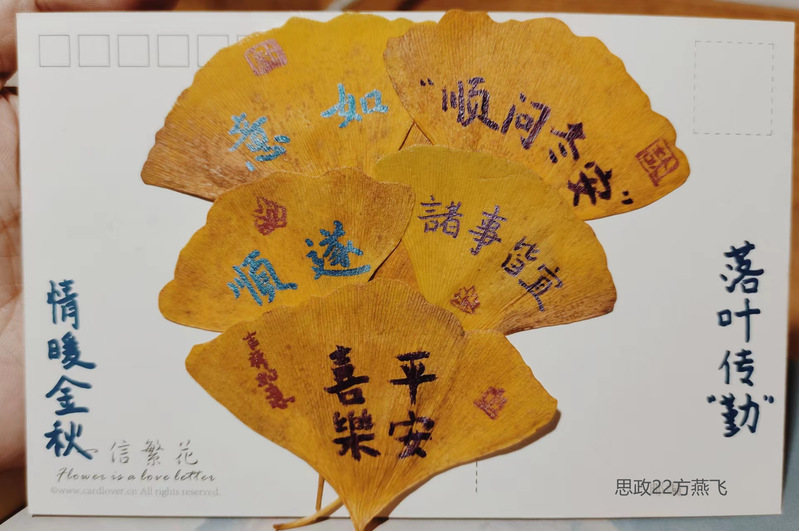 如意
“顺问冬安”
順遂
諸事皆宜
平安
喜樂
落叶传“勤”
情暖金秋
一信繁花
Flower is a love letter
©www.cardlover.cn All rights reserved.
思政22方燕飞